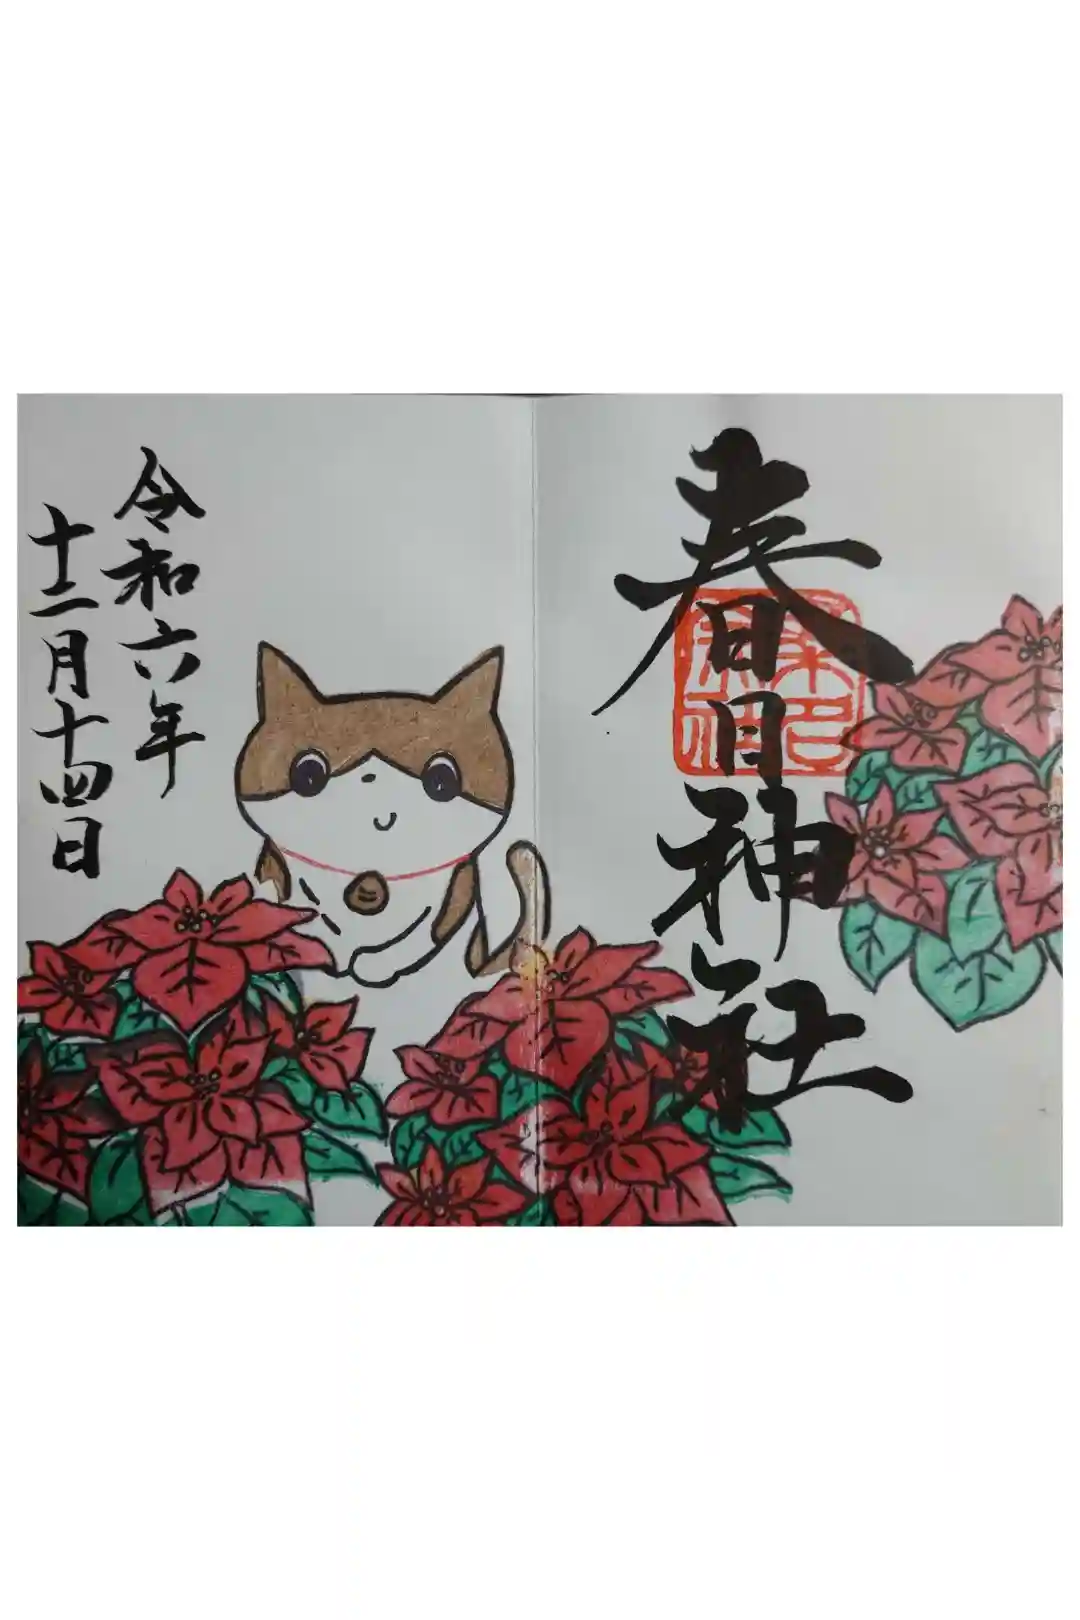 春日神社
令和六年
十二月十四日